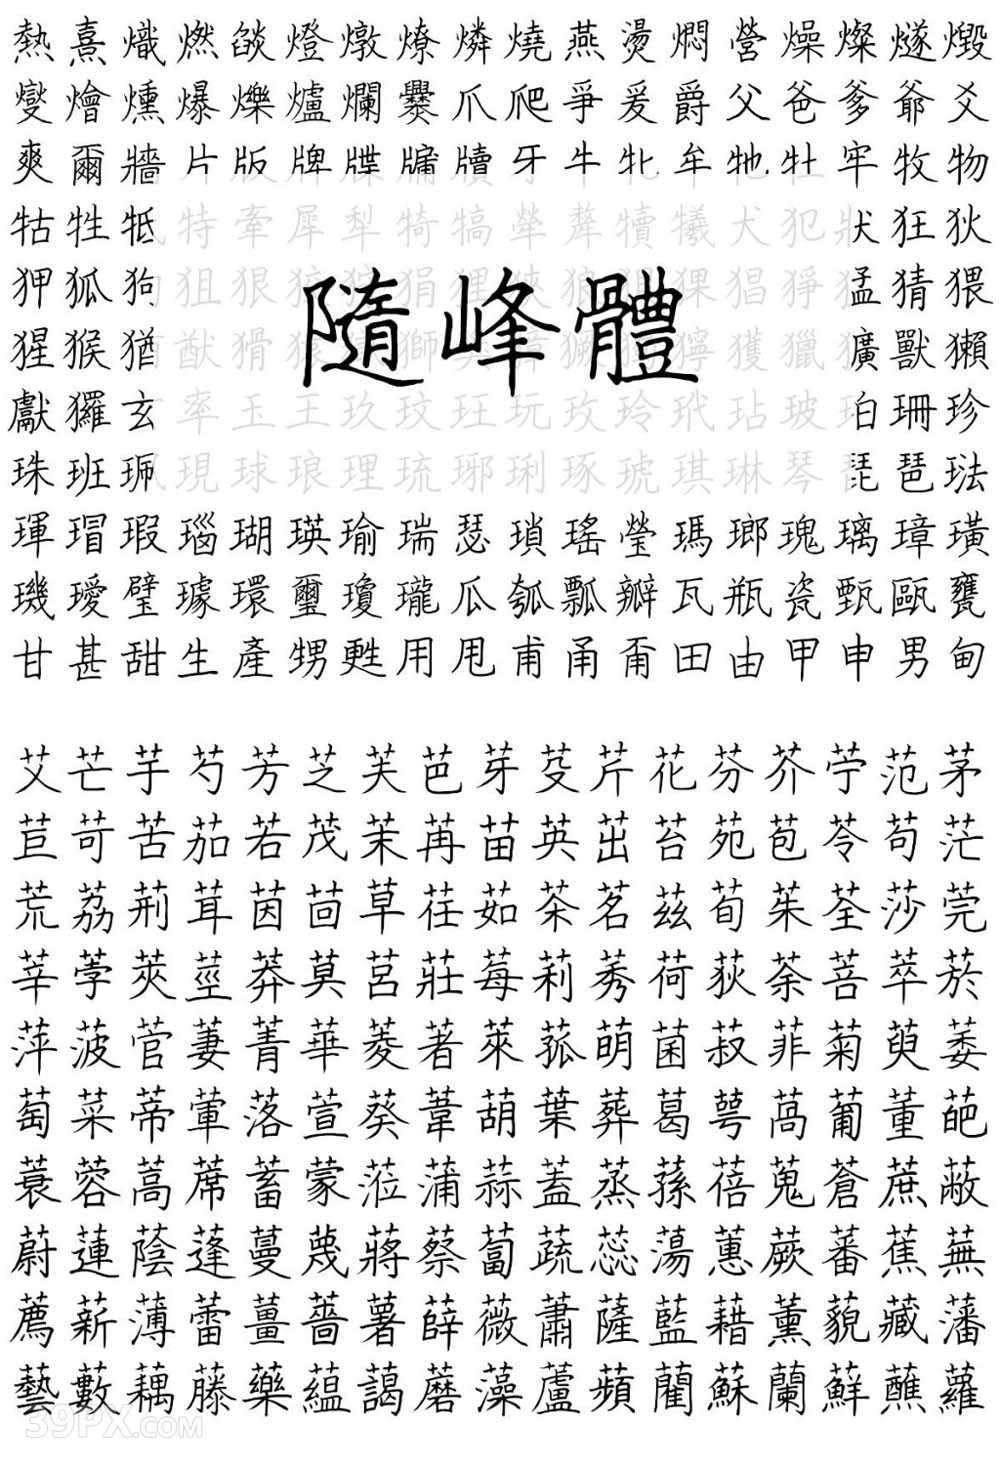 熱熹熾燃燄燈燉燎燐燒燕燙燜營燥燦燧燬
燮燴燻爆爍爐爛爨爪爬爭爰爵父爸爹爺爻
爽爾牆片版牌牒牖牘牙牛牝牟牠牡牢牧物
牯牲牴特牽犀犁犄犒犖犛犢犧犬犯狀狂狄
狎狐狗狙狠狼狽狷狸狹狼猓猖猙猛猜猥
猩猴猶猷猾猿獅獰獲獵獷獸獺
獻玀玄率玉王玖玟玨玩玫玲玳玷玻珀珊珍
珠班珮現球琅理琉琊琍琢琥琪琳琴琵琶琺
琿瑁瑕瑙瑚瑛瑜瑞瑟瑣瑤瑩瑪瑯瑰璃璋璜
璣璦璧璩環璽瓊瓏瓜瓠瓢瓣瓦瓶瓷甄甌甕
甘甚甜生產甥甦用甩甫甬甭田由甲申男甸
隨峰體
艾芒芋芍芳芝芙芭芽芟芹花芬芥苧范茅
苣苛苦茄若茂茉苒苗英茁苔苑苞苓苟茫
荒荔荊茸茵茴草荏茹茶茗茲荀茱荃莎莞
莘荸莢莖莽莫莒莊莓莉莠荷荻荼菩萃菸
萍菠菅萋菁華菱著萊菰萌菌菽菲菊萸萎
萄菜蒂葷落萱葵葦葫葉葬葛萼萵葡董葩
蓑蓉蒿蓆蓄蒙蒞蒲蒜蓋蒸蓀蓓蒐蒼蔗蔽
蔚蓮蔭蓬蔓蔑蔣蔡蔔蔬蕊蕩蕙蕨蕃蕉蕪
薦薪薄蕾薑薔薯薛薇蕭薩藍藉薰藐藏藩
藝藪藕藤藥蘊藹蘑藻蘆蘋藺蘇蘭蘚蘸蘿
39PX.com